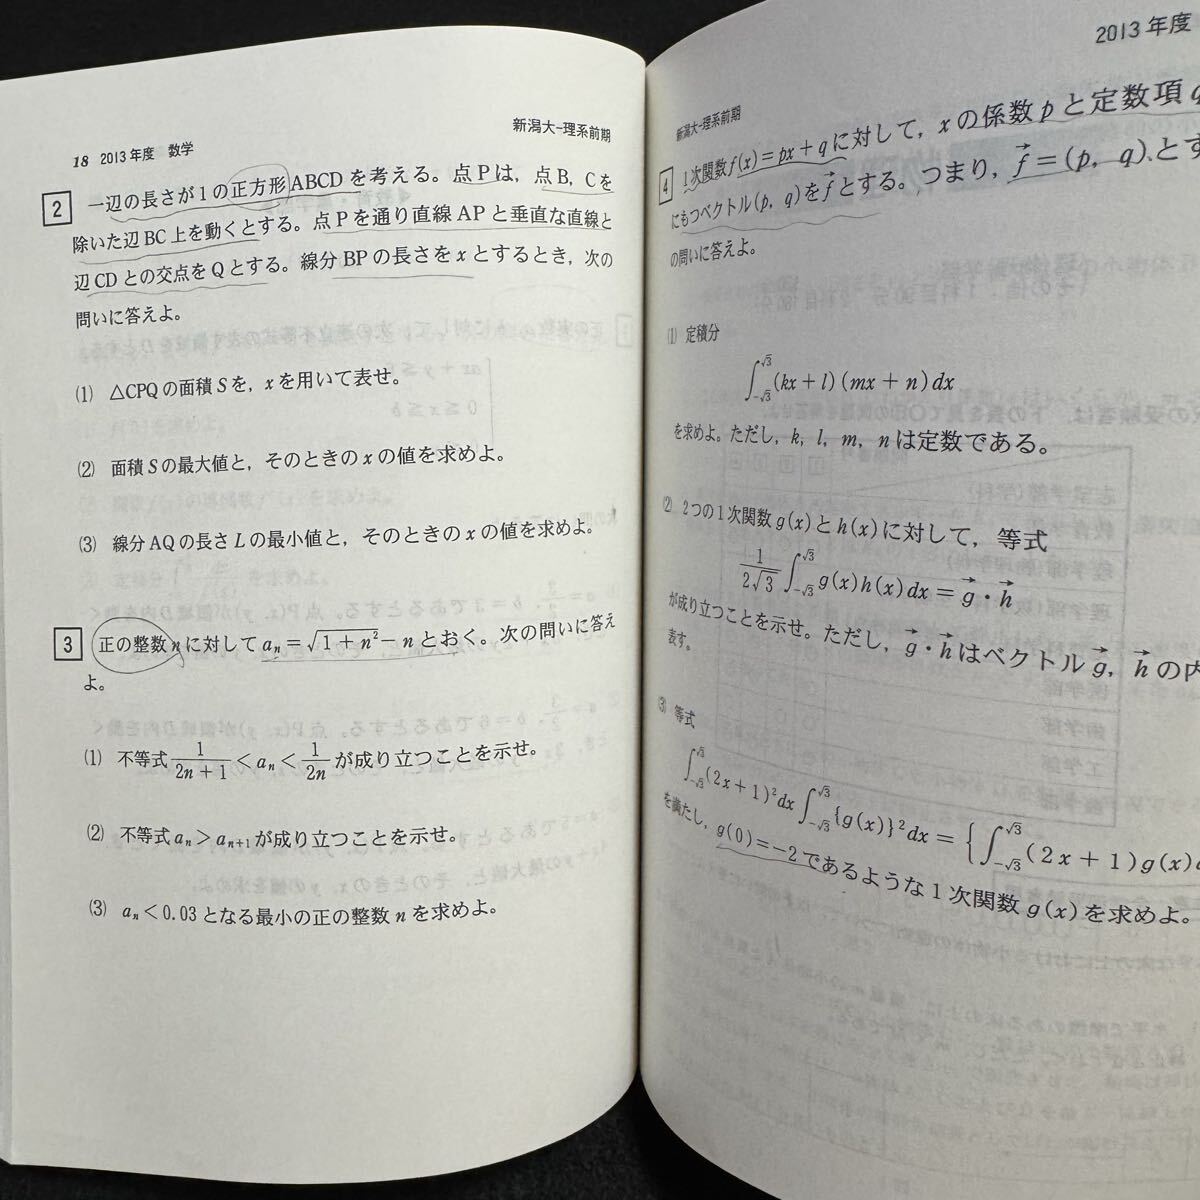 18 2013年度 数学
新潟大-理系前期
2 一辺の長さが1の正方形ABCDを考える。点Pは，点B，Cを
除いた辺BC上を動くとする。点Pを通り直線APと垂直な直線と
辺CDとの交点をQとする。線分BPの長さをxとするとき，次の
問いに答えよ。
(1) △CPQの面積Sを，xを用いて表せ。
(2) 面積Sの最大値と，そのときのxの値を求めよ。
(3) 線分AQの長さLの最小値と，そのときのxの値を求めよ。
3 正の整数nに対してaₙ=√(1+n²)-nとおく。次の問いに答え
よ。
(1) 不等式 1/(2n+1) < aₙ < 1/(2n) が成り立つことを示せ。
(2) 不等式aₙ>aₙ₊₁が成り立つことを示せ。
(3) aₙ<0.03となる最小の正の整数nを求めよ。
2013年度
新潟大-理系前期
4 1次関数f(x)=px+qに対して，xの係数pと定数項q
にもつベクトル(p, q)をf⃗とする。つまり，f⃗=(p, q)とす
の問いに答えよ。
(1) 定積分
∫_{-√3}^{√3}(kx+l)(mx+n)dx
を求めよ。ただし，k, l, m, nは定数である。
(2) 2つの1次関数g(x)とh(x)に対して，等式
1/(2√3) ∫_{-√3}^{√3} g(x)h(x)dx = g⃗・h⃗
が成り立つことを示せ。ただし，g⃗・h⃗はベクトルg⃗, h⃗の内
表す。
(3) 等式
∫_{-√3}^{√3}(2x+1)²dx ∫_{-√3}^{√3}{g(x)}²dx = {∫_{-√3}^{√3}(2x+1)g(x)
を満たし，g(0)=-2であるような1次関数g(x)を求めよ。